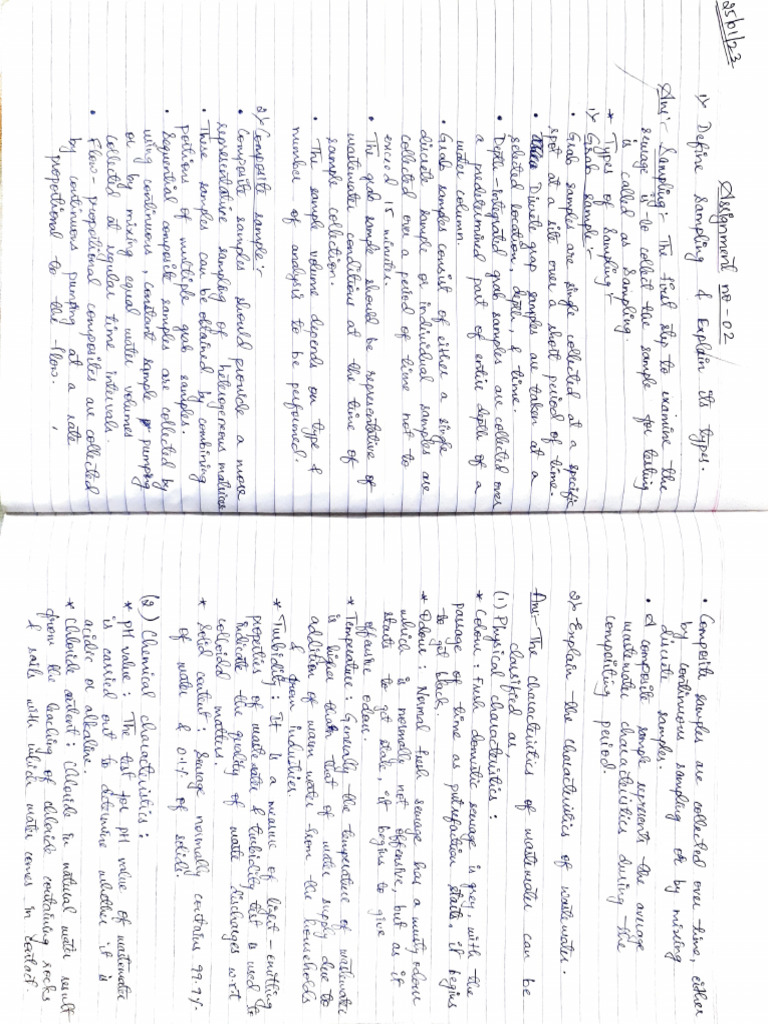 25/01/23
Assignment no - 02
1) Define Sampling & Explain its types.
Ans:- Sampling:- The first step to examine the
sewage is to collect the sample for testing
is called as Sampling.
* Types of Sampling:-
1) Grab sample:-
• Grab samples are single collected at a specific
spot at a site over a short period of time.
• Discrete grap samples are taken at a
selected location, depth, & time.
• Depth-Integrated grab samples are collected over
a predetermined part of entire depth of a
water column.
• Grab samples consist of either a single
discrete sample or individual samples are
collected over a period of time not to
exceed 15 minutes.
• The grab sample should be representative of
wastewater conditions at the time of
sample collection.
• The sample volume depends on type &
number of analysis to be performed.
2) Composite sample:-
• Composite samples should provide a more
representative sampling of heterogeneous matrices
• These samples can be obtained by combining
potions of multiple grab samples.
• Sequential composite samples are collected by
using continuous, constant sample pumping
or by mixing equal water volumes
collected at regular time intervals.
• Flow-propotional composites are collected
by continuous pumping at a rate
propotional to the flow.
• Composite samples are collected over time, either
by continuous sampling or by mixing
discrete samples.
• A composite sample represents the average
wastewater characteristics during the
compositing period.
2) Explain the characteristics of wastewater.
Ans:- The characteristics of wastewater can be
classified as,
(1) Physical characteristics:
* Colour: Fresh domestic sewage is grey, with the
passage of time as putrefaction starts, it begins
to get black.
* Odour: Normal fresh sewage has a musty odour
which is normally not offensive, but as it
starts to get stale, it begins to give
offensive odour.
* Temperature: Generally the temperature of wastewater
is higher than that of water supply due to
addition of warm water from the households
& from industries.
* Turbidity: It is a measure of light-emitting
properties of wastewater & turbidity test is used to
indicate the quality of waste discharges w.r.t
colloidal matters.
* Solid content: Sewage normally contains 99.9%.
of water & 0.1% of solids.
(2) Chemical characteristics:
* pH value: The test for pH value of wastewater
is carried out to determine whether it is
acidic or alkaline.
* Chloride content: Chloride in natural water result
from the leaching of chloride containing rocks
& soils with which water comes in contact.